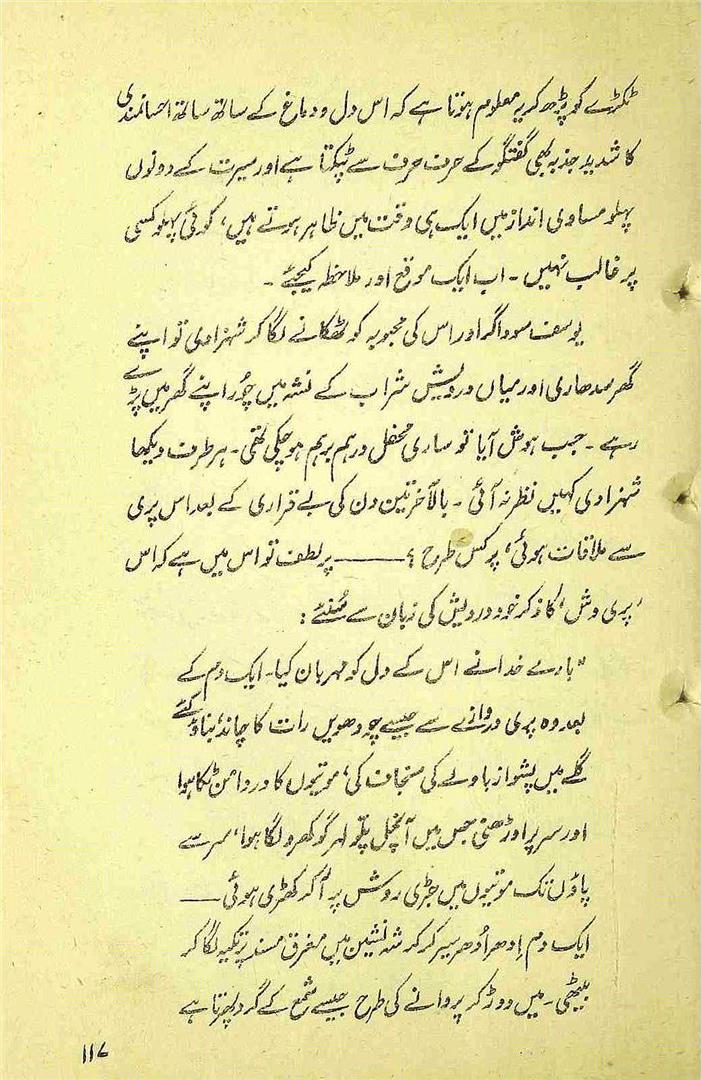 ٹکڑے کو پڑھ کر یہ معلوم ہوتا ہے کہ اس دل و دماغ کے ساتھ ساتھ احسانمندی
کا شدید جذبہ بھی گفتگو کے حرف حرف سے ٹپکتا ہے اور سیرت کے دونوں
پہلو مساوی انداز میں ایک ہی وقت میں ظاہر ہوتے ہیں، کوئی پہلو کسی
پر غالب نہیں ۔ اب ایک موقع اور ملاحظہ کیجئے ۔
یوسف سوداگر اور اس کی محبوبہ کو ٹھکانے لگا کر شہزادی تو اپنے
گھر سدھاری اور میاں درویش شراب کے نشہ میں چُور اپنے گھر میں پڑے
رہے ۔ جب ہوش آیا تو ساری محفل درہم برہم ہو چکی تھی ۔ ہر طرف دیکھا
شہزادی کہیں نظر نہ آئی ۔ بالآخر تین دن کی بے قراری کے بعد اس پری
سے ملاقات ہوئی، پر کس طرح ؟ ——— پر لطف تو اس میں ہے کہ اس
'پری وش' کا ذکر خود درویش کی زبان سے سُنئے :
"بارے خدا نے اس کے دل کو مہربان کیا ۔ ایک دم کے
بعد وہ پری دروازے سے جیسے چودھویں رات کا چاند، بناؤ کئے
گلے میں پشواز بادلے کی سنجاف کی، موتیوں کا در دامن ٹکا ہوا
اور سر پر اوڑھنی جس میں آنچل پلو لہر گوکھرو لگا ہوا، سر سے
پاؤں تک موتیوں میں جڑی روش پر آ کر کھڑی ہوئی ——
ایک دم اِدھر اُدھر سیر کر کر شہ نشین میں مغرق مسند پر تکیہ لگا کر
بیٹھی ۔ میں دوڑ کر پروانے کی طرح جیسے شمع کے گرد پھرتا ہے
۱۱۷